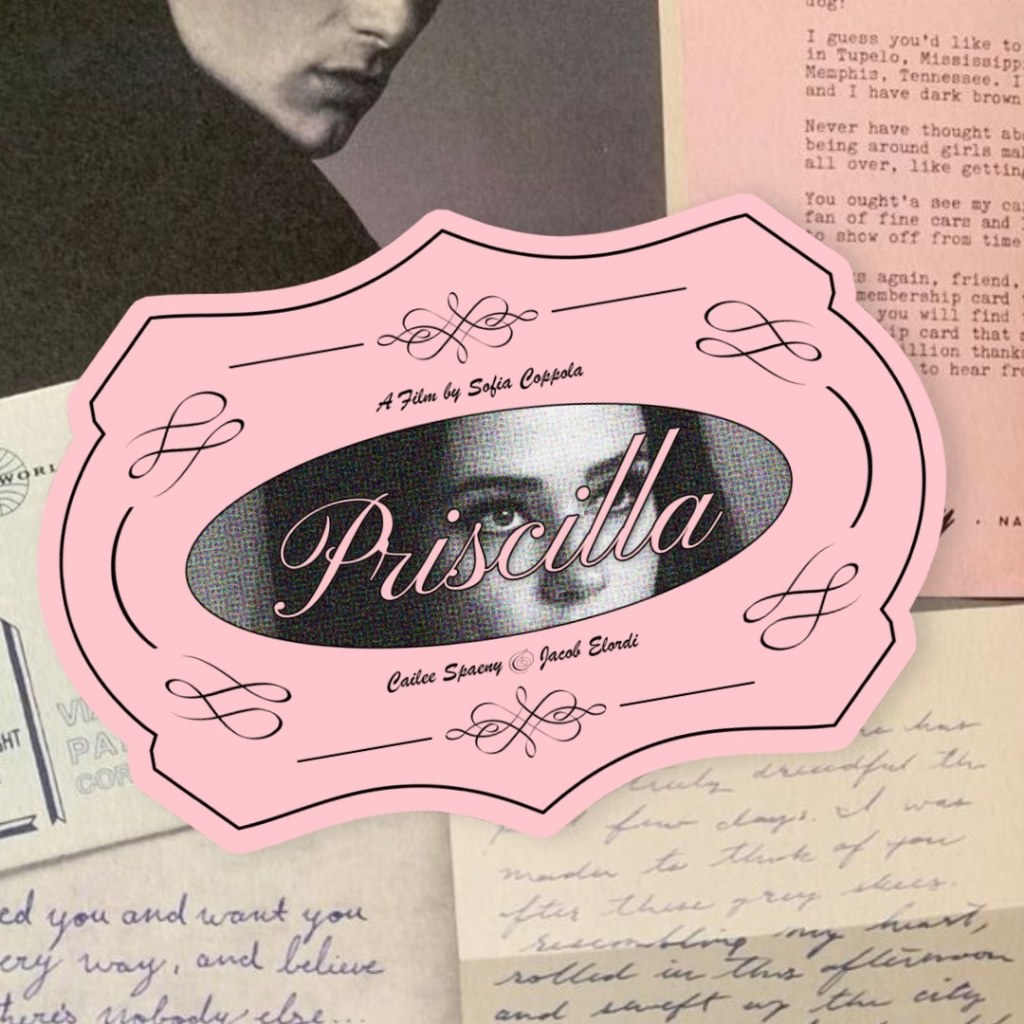 dog!
I guess you'd like to
in Tupelo, Mississippi
Memphis, Tennessee. I
and I have dark brown
Never have thought
being around girls
all over, like getting
You ought'a see my
fan of fine cars and
to show off from time
again, friend,
membership card
you will find
card that
thanks
to hear
WORL
A Film by Sofia Coppola
Priscilla
Cailee Spaeny & Jacob Elordi
NA
HT
VIA
PA
COR
has
truly dreadful
few days. I was
to think of you
After these grey skies.
resembling my heart,
rolled in this afternoon
and swept up the city
you and want you
way, and believe
there's nobody else...